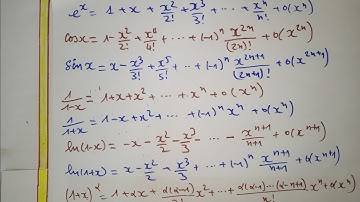 e^x = 1 + x + x²/2! + x³/3! + ... + x^n/n! + o(x^n)
cos x = 1 - x²/2! + x⁴/4! + ... + (-1)^n x^(2n)/(2n)! + o(x^(2n))
sin x = x - x³/3! + x⁵/5! + ... + (-1)^n x^(2n+1)/(2n+1)! + o(x^(2n+1))
1/(1-x) = 1 + x + x² + ... + x^n + o(x^n)
1/(1+x) = 1 - x + x² + ... + (-1)^n x^n + o(x^n)
ln(1-x) = -x - x²/2 - x³/3 - ... - x^(n+1)/(n+1) + o(x^(n+1))
ln(1+x) = x - x²/2 + x³/3 + ... + (-1)^n x^(n+1)/(n+1) + o(x^(n+1))
(1+x)^α = 1 + αx + α(α-1)/2! x² + ... + α(α-1)...(α-n+1)/n! x^n + o(x^n)